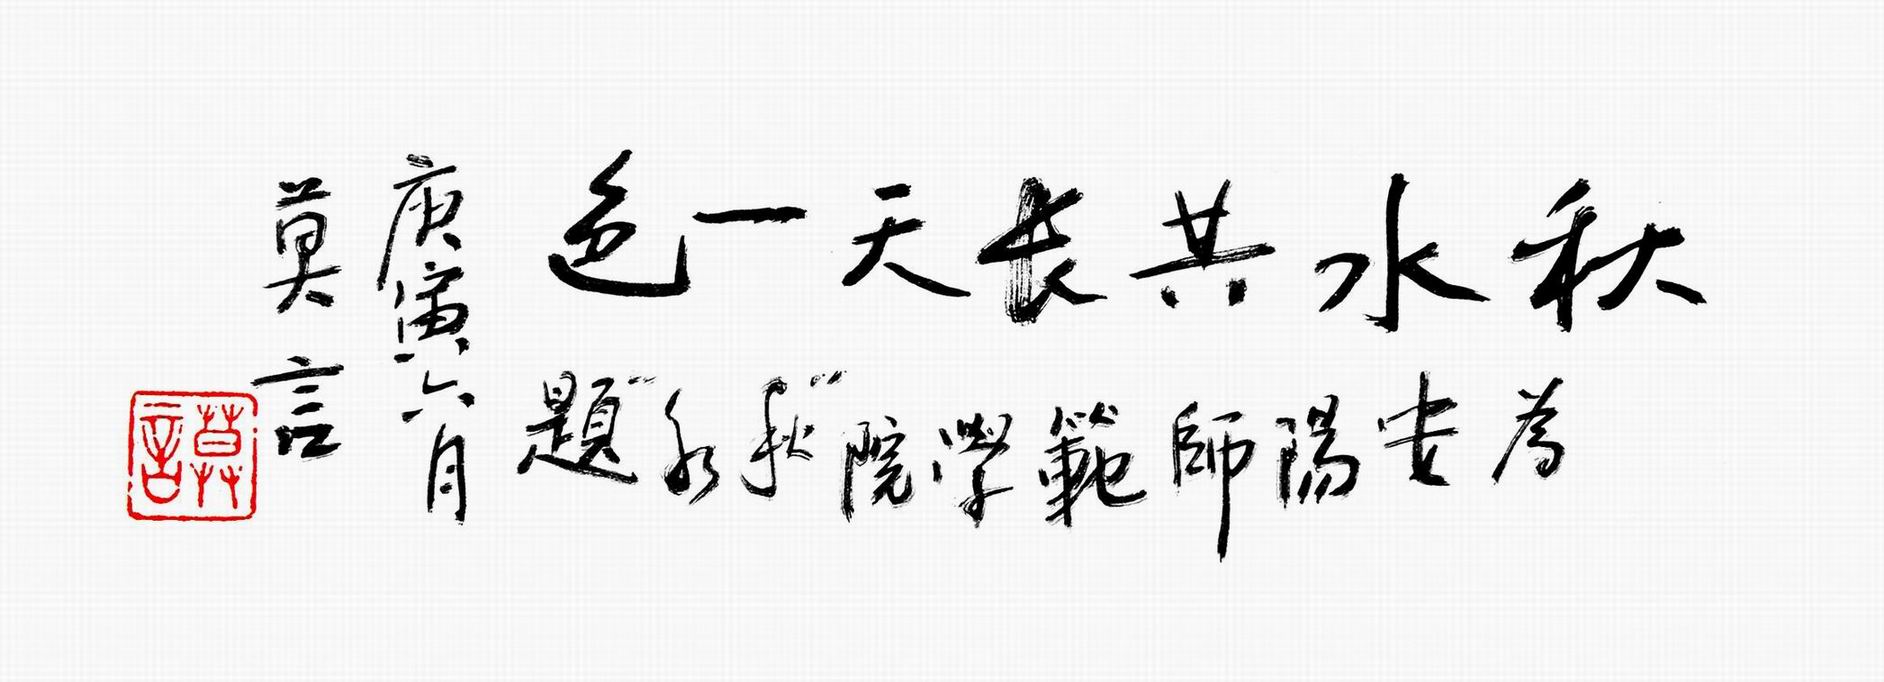 秋水共长天一色
為安陽師範學院“秋水”題
庚寅六月
莫言
莫言